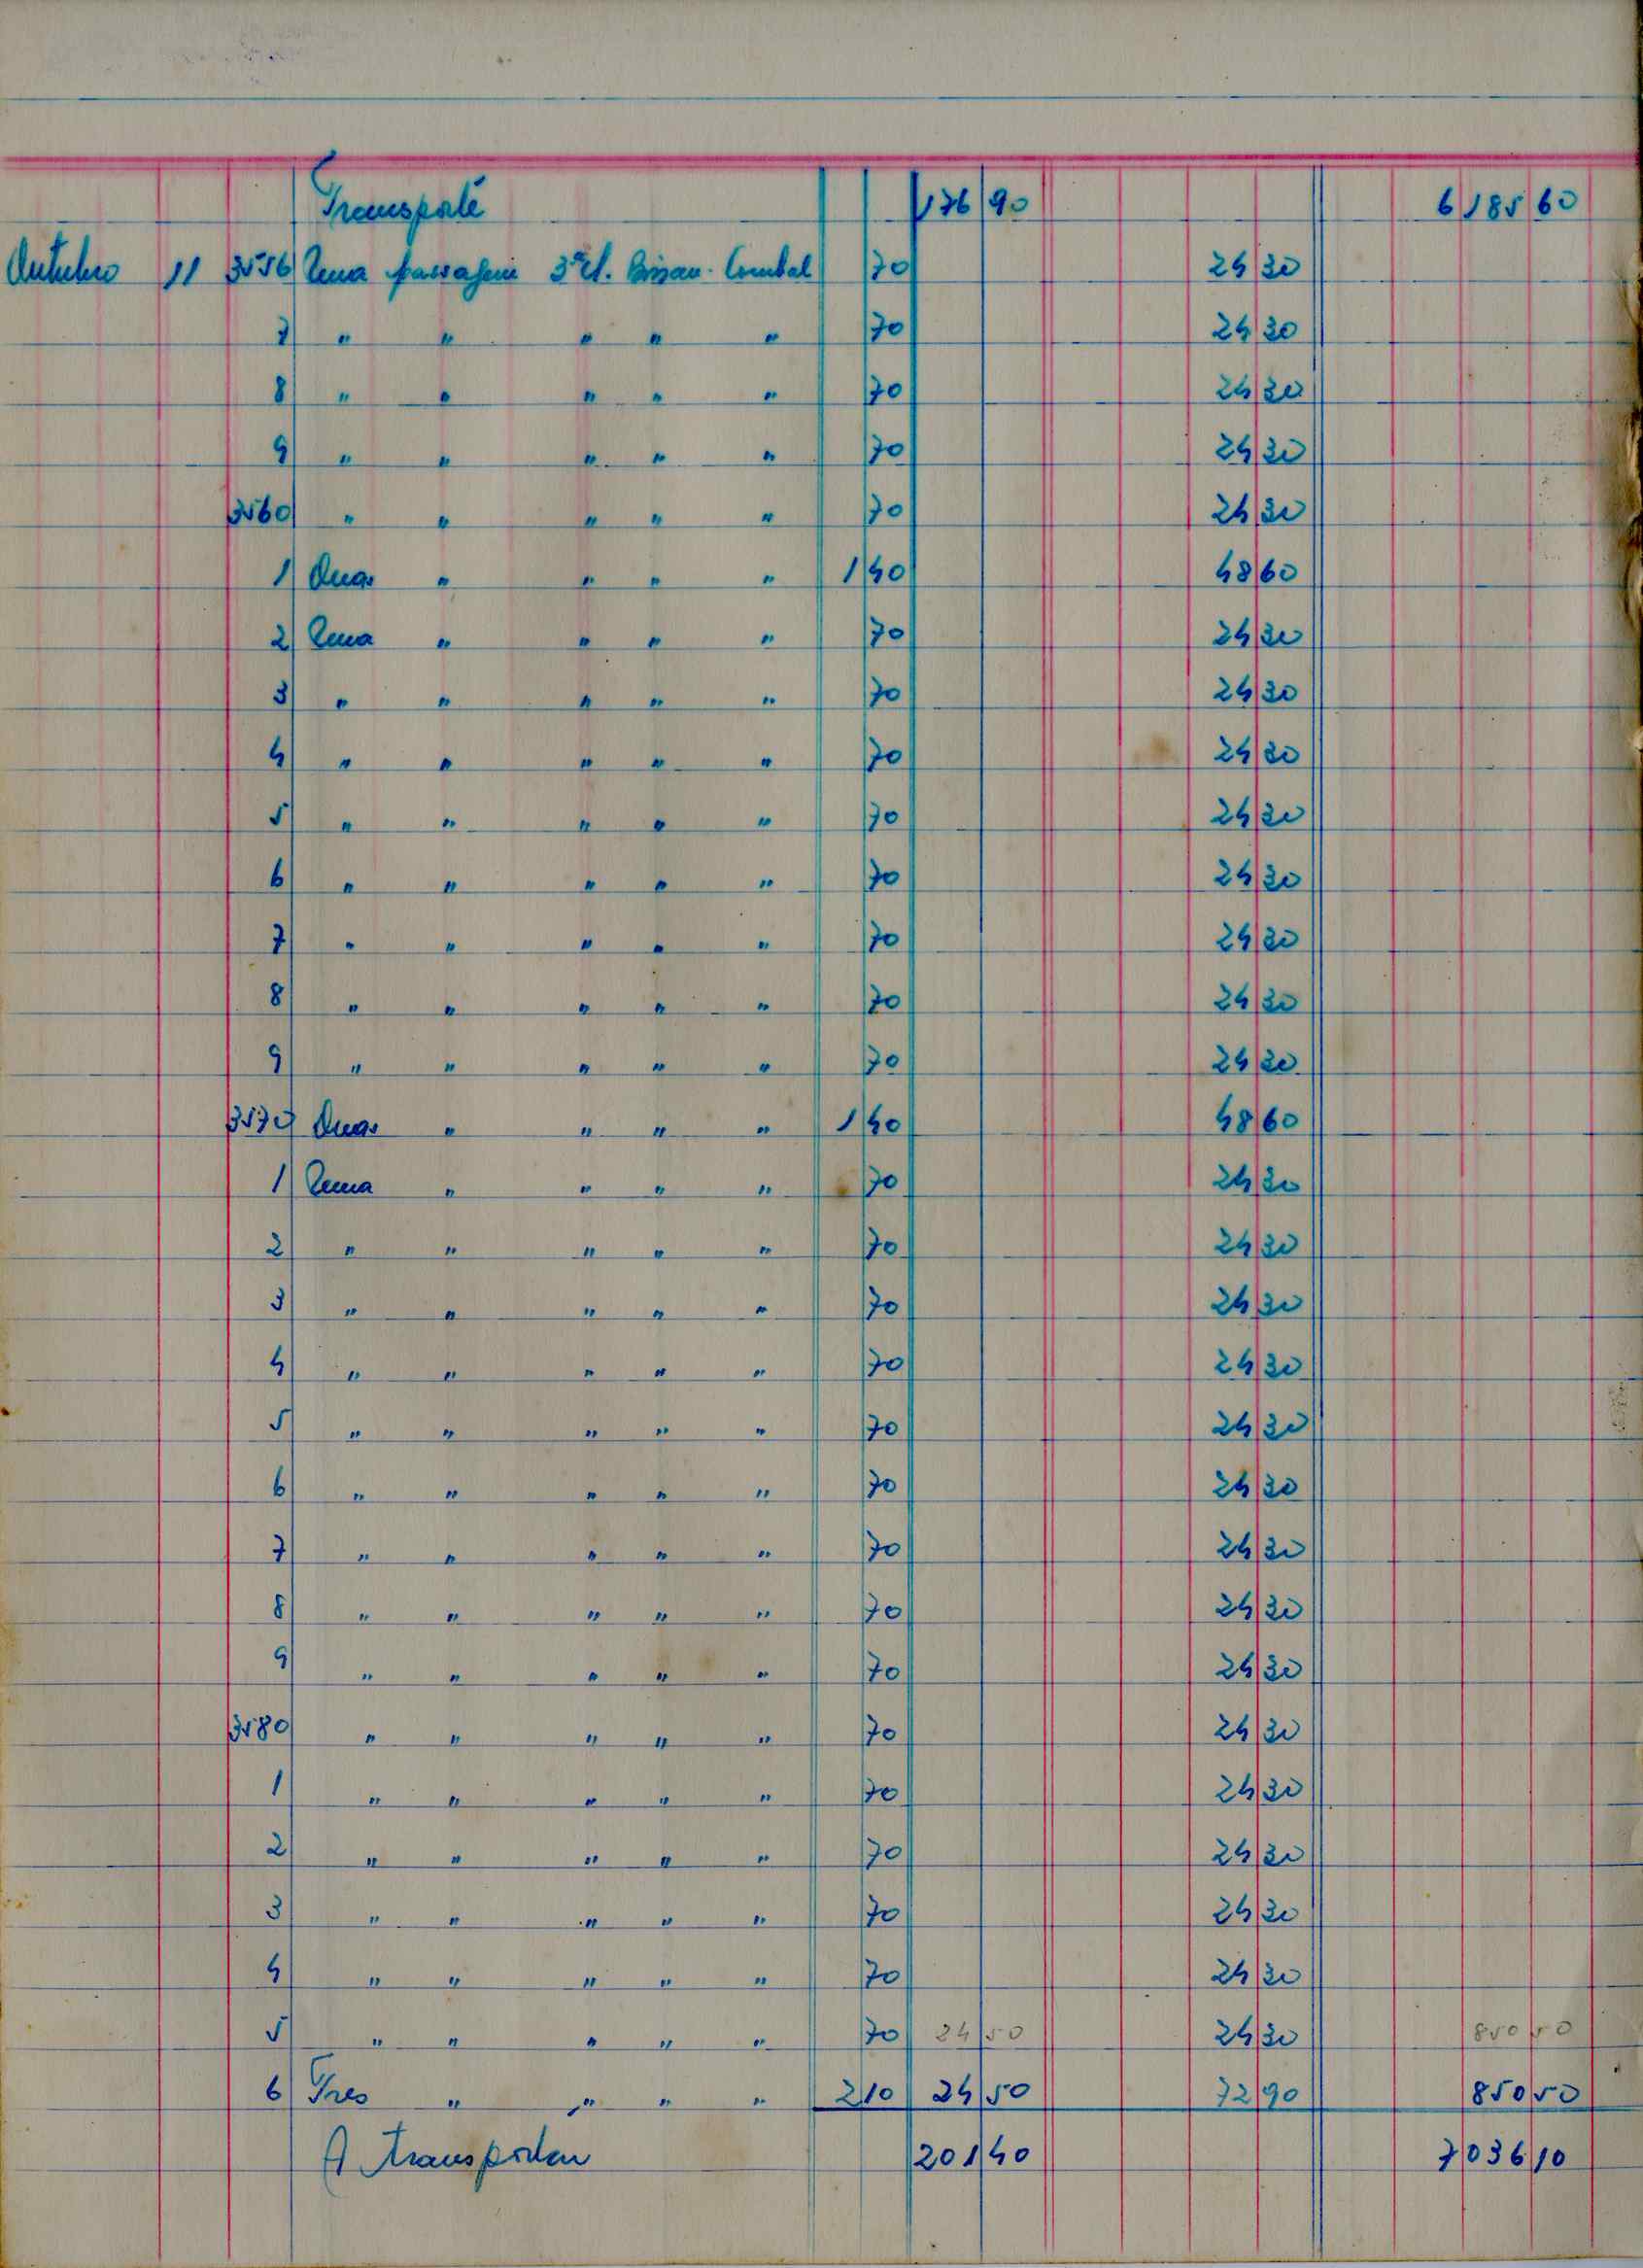 Transporte 176 90 6 185 60
Outubro 11 3556 Uma passagem 3ª cl. Bissau - Combal 70 24 30
7 " " " " " 70 24 30
8 " " " " " 70 24 30
9 " " " " " 70 24 30
3560 " " " " " 70 24 30
1 Duas " " " " 1 40 48 60
2 Uma " " " " 70 24 30
3 " " " " " 70 24 30
4 " " " " " 70 24 30
5 " " " " " 70 24 30
6 " " " " " 70 24 30
7 " " " " " 70 24 30
8 " " " " " 70 24 30
9 " " " " " 70 24 30
3570 Duas " " " " 1 40 48 60
1 Uma " " " " 70 24 30
2 " " " " " 70 24 30
3 " " " " " 70 24 30
4 " " " " " 70 24 30
5 " " " " " 70 24 30
6 " " " " " 70 24 30
7 " " " " " 70 24 30
8 " " " " " 70 24 30
9 " " " " " 70 24 30
3580 " " " " " 70 24 30
1 " " " " " 70 24 30
2 " " " " " 70 24 30
3 " " " " " 70 24 30
4 " " " " " 70 24 30
5 " " " " " 70 24 50 24 30 850 50
6 Tres " " " " 2 10 24 50 72 90 850 50
A transportar 201 40 7 036 10